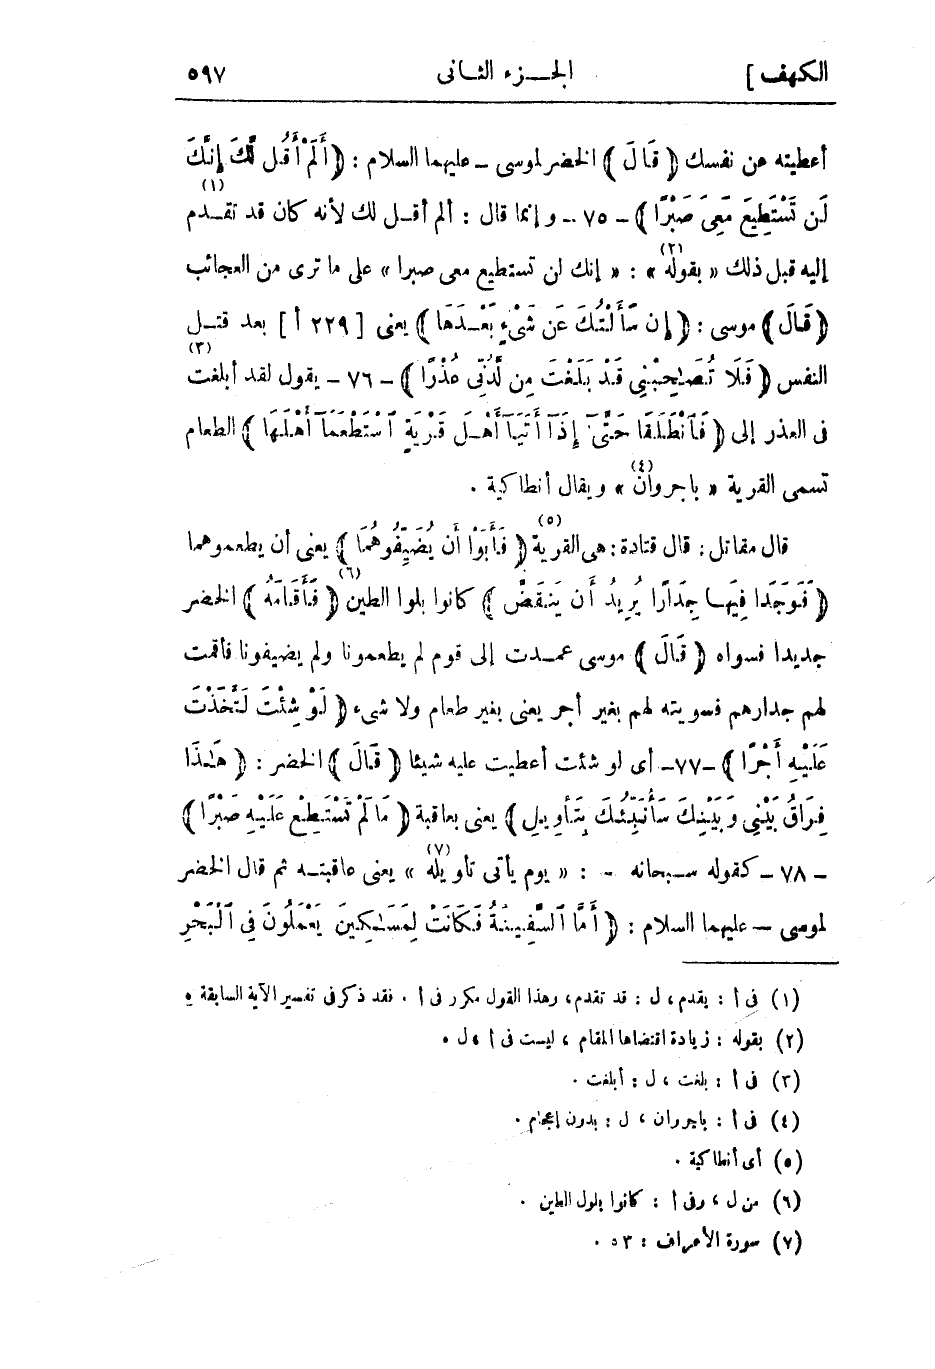 الكهف ] الجـــزء الثـانى ٥٩٧
أعطيته عن نفسك ﴿ قَالَ ﴾ الخضر لموسى ــ عليهما السلام : ﴿ أَلَمْ أَقُل لَّكَ إِنَّكَ
لَن تَسْتَطِيعَ مَعِىَ صَبْرًا ﴾ ــ ٧٥ ــ (١) و إنما قال : ألم أقــل لك لأنه كان قد تقــدم
إليه قبل ذلك « بقوله (٢) » : « إنك لن تستطيع معى صبرا » على ما ترى من العجائب
﴿ قَالَ ﴾ موسى : ﴿ إِن سَأَلْتُكَ عَن شَىْءٍ بَعْـدَهَا ﴾ يعنى [ ٢٢٩ أ ] بعد قتـل
النفس ﴿ فَلَا تُصَـٰحِبْنِى قَدْ بَلَغْتَ مِن لَّدُنِّى عُذْرًا ﴾ ــ ٧٦ ــ يقول لقد أبلغت (٣)
فى العذر إلى ﴿ فَٱنْطَلَقَا حَتَّىٰٓ إِذَآ أَتَيَآ أَهْـلَ قَرْيَةٍ ٱسْتَطْعَمَآ أَهْلَهَا ﴾ الطعام
تسمى القرية « باجروان (٤) » و يقال أنطاكية .
قال مقاتل : قال قتادة : هى القرية (٥) ﴿ فَأَبَوْا أَن يُضَيِّفُوهُمَا ﴾ يعنى أن يطعموهما
﴿ فَوَجَدَا فِيهَـا جِدَارًا يُرِيدُ أَن يَنقَضَّ ﴾ كانوا بلوا الطين (٦) ﴿ فَأَقَامَهُ ﴾ الخضر
جديدا فسواه ﴿ قَالَ ﴾ موسى عمــدت إلى قوم لم يطعمونا ولم يضيفونا فأقمت
لهم جدارهم فسويته لهم بغير أجر يعنى بغير طعام ولا شىء ﴿ لَوْ شِئْتَ لَتَّخَذْتَ
عَلَيْهِ أَجْرًا ﴾ ــ ٧٧ــ أى لو شئت أعطيت عليه شيئا ﴿ قَالَ ﴾ الخضر : ﴿ هَـٰذَا
فِرَاقُ بَيْنِى وَ بَيْنِكَ سَأُنَبِّئُكَ بِتَأْوِيلِ ﴾ يعنى بعاقبة ﴿ مَا لَمْ تَسْتَطِع عَلَيْهِ صَبْرًا ﴾
ــ ٧٨ ــ كقوله سـبحانه ــ : « يوم يأتى تأويله (٧) » يعنى عاقبتـه ثم قال الخضر
لموسى ــ عليهما السلام : ﴿ أَمَّا ٱلسَّفِينَةُ فَكَانَتْ لِمَسَـٰكِينَ يَعْمَلُونَ فِى ٱلْبَحْرِ
(١) فى أ : يقدم ، ل : قد تقدم ، وهذا القول مكرر فى أ . فقد ذكر فى تفسير الآية السابقة .
(٢) بقوله : زيادة اقتضاها المقام ، ليست فى أ ، ل .
(٣) فى أ : بلغت ، ل : أبلغت .
(٤) فى أ : باجروان ، ل : بدون إعجام .
(٥) أى أنطاكية .
(٦) من ل ، وفى أ : كانوا يلول الطين .
(٧) سورة الأعراف : ٥٣ .